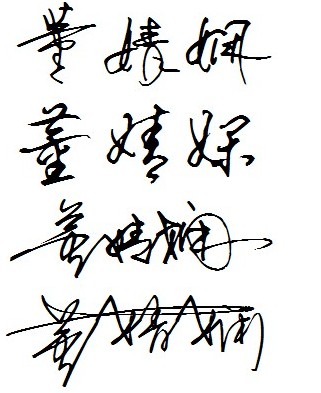 董婧娴
董婧娴
董婧娴
董婧娴